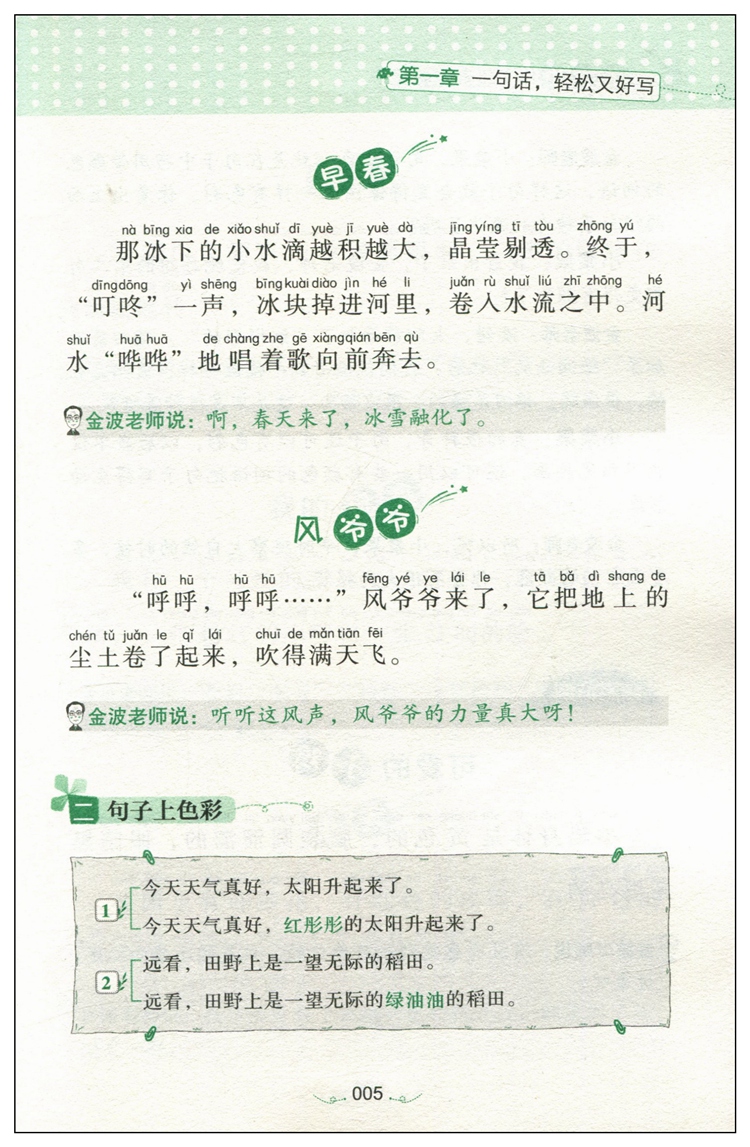 第一章 一句话，轻松又好写
早春
nà bīng xia de xiǎo shuǐ dī yuè jī yuè dà jīng yíng tī tòu zhōng yú
那冰下的小水滴越积越大，晶莹剔透。终于，
dīng dōng yì shēng bīng kuài diào jìn hé li juǎn rù shuǐ liú zhī zhōng hé
“叮咚”一声，冰块掉进河里，卷入水流之中。河
shuǐ huā huā de chàng zhe gē xiàng qián bēn qù
水“哗哗”地唱着歌向前奔去。
金波老师说：啊，春天来了，冰雪融化了。
风爷爷
hū hū hū hū fēng yé ye lái le tā bǎ dì shang de
“呼呼，呼呼……”风爷爷来了，它把地上的
chén tǔ juǎn le qǐ lái chuī de mǎn tiān fēi
尘土卷了起来，吹得满天飞。
金波老师说：听听这风声，风爷爷的力量真大呀！
二 句子上色彩
1
今天天气真好，太阳升起来了。
今天天气真好，红彤彤的太阳升起来了。
2
远看，田野上是一望无际的稻田。
远看，田野上是一望无际的绿油油的稻田。
005